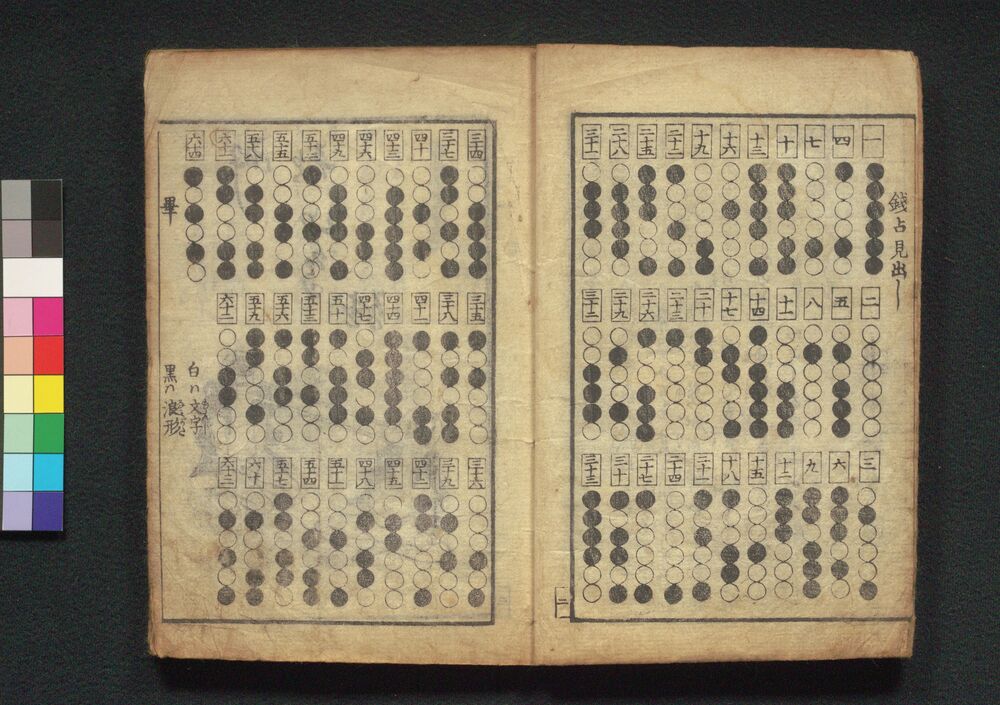 錢占見出し
一
二
三
四
五
六
七
八
九
十
十一
十二
十三
十四
十五
十六
十七
十八
十九
二十
二十一
二十二
二十三
二十四
二十五
二十六
二十七
二十八
二十九
三十
三十一
三十二
三十三
二
三十四
三十五
三十六
三十七
三十八
三十九
四十
四十一
四十二
四十三
四十四
四十五
四十六
四十七
四十八
四十九
五十
五十一
五十二
五十三
五十四
五十五
五十六
五十七
五十八
五十九
六十
六十一
六十二
六十三
六十四
白ハ文字
黒ハ浪形
畢